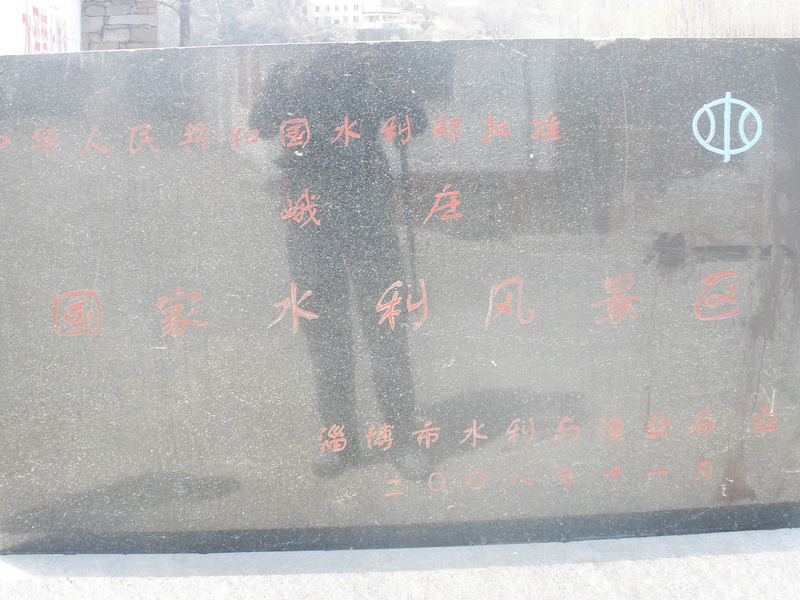 中华人民共和国水利部批准
峨庄
国家水利风景区
淄博市水利与渔业局 立
二〇〇八年十一月